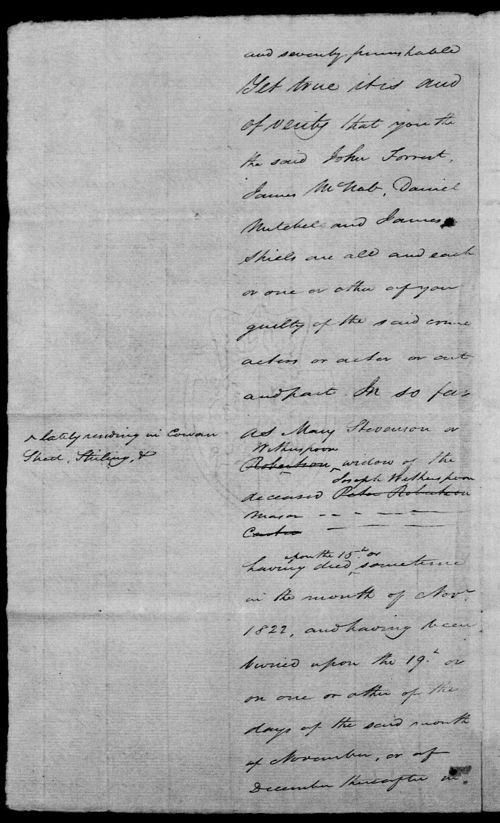 and severely punishable
Yet true it is and
of verity that you the
the said John Forrest,
James McNab, Daniel
Mitchel and James
Shiels are all and each
or one or other of you
guilty of the said crime
actors or actor or art
and part. In so far
as Mary Stevenson or
Witherspoon
Robertson, widow of the
Joseph Witherspoon
deceased Peter Robertson
mason
having died, upon the 15th or sometime
in the month of Novr
1822, and having been
buried upon the 19th or
on one or other of the
days of the said month
of November, or of
December thereafter in
x lately residing in Cowan
Shed, Stirling, &